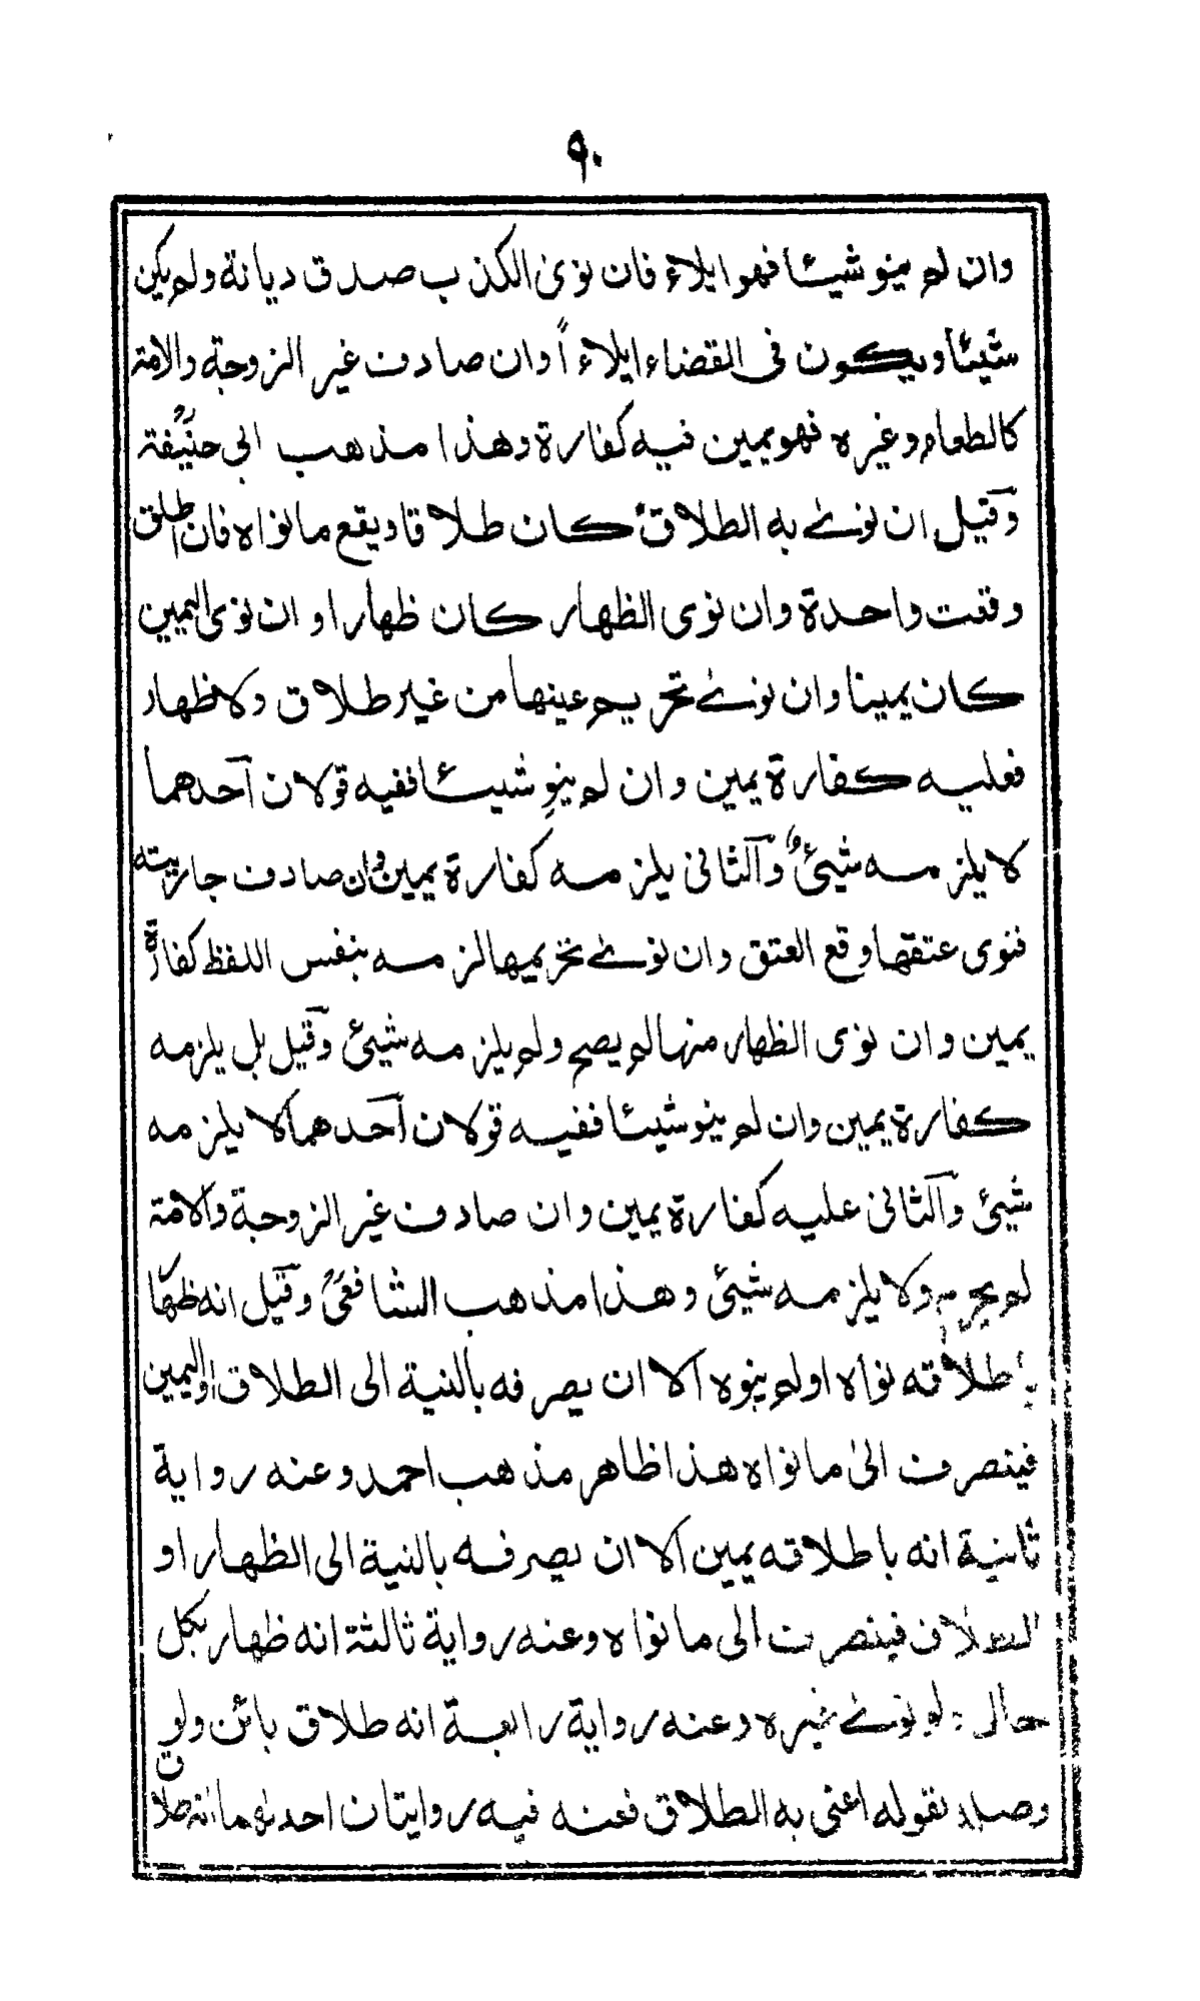 ٩٠
وان لم ينو شيئا فهو ايلاء فان نوى الكذب صدق ديانة ولم يكن
شيئا ويكون فى القضاء ايلاءً وان صادف غير الزوجة والامة
كالطعام وغيره فهو يمين فيه كفارة وهذا مذهب ابى حنيفة
وقيل ان نوى به الطلاق كان طلاقا ويقع ما نواه فان اطلق
وقعت واحدة وان نوى الظهار كان ظهارا وان نوى اليمين
كان يمينا وان نوى تحريم عينها من غير طلاق ولا ظهار
فعليه كفارة يمين وان لم ينوِ شيئا ففيه قولان احدهما
لا يلزمه شيئ والثانى يلزمه كفارة يمين وان صادف جاريته
فنوى عتقها وقع العتق وان نوى تحريمها لزمه بنفس اللفظ كفارة
يمين وان نوى الظهار منها لم يصح ولم يلزمه شيئ وقيل بل يلزمه
كفارة يمين وان لم ينو شيئا ففيه قولان احدهما لا يلزمه
شيئ والثانى عليه كفارة يمين وان صادف غير الزوجة والامة
لم يحرم ولا يلزمه شيئ وهذا مذهب الشافعى وقيل انه ظهار
باطلاقه نواه او لم ينوه الا ان يصرفه بالنية الى الطلاق او اليمين
فينصرف الى ما نواه هذا ظاهر مذهب احمد وعنه رواية
ثانية انه باطلاقه يمين الا ان يصرفه بالنية الى الظهار او
الطلاق فينصرف الى ما نواه وعنه رواية ثالثة انه ظهار بكل
حال ولو نوى غيره وعنه رواية رابعة انه طلاق بائن ولو
وصله بقوله اعنى به الطلاق فعنه فيه روايتان احدىهما انه طلاق